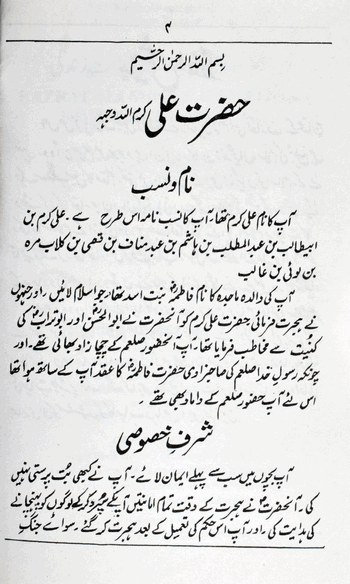 ۳
بسم اللہ الرحمٰن الرحیم
حضرت علی کرم اللہ وجہہ
نام و نسب
آپ کا نام علی کرم تھا۔ آپ کا نسب نامہ اس طرح ہے۔ علی کرم بن
ابیطالب بن عبدالمطلب بن ہاشم بن عبد مناف بن قصی بن کلاب مرہ
بن لوئی بن غالب
آپ کی والدہ ماجدہ کا نام فاطمہؓ بنت اسد تھا، جو اسلام لائیں۔ اور جنہوں
نے ہجرت فرمائی حضرت علی کرم کو آنحضرت نے ابوالحسنؓ اور ابو ترابؓ کی
کنیت سے مخاطب فرمایا تھا۔ آپ آنحضور صلعم کے چچا زاد بھائی تھے۔ اور
چونکہ رسولِ خدا صلعم کی صاحبزادی حضرت فاطمہؓ کا عقد آپ کے ساتھ ہوا تھا
اس لئے آپ حضور صلعم کے داماد بھی تھے۔
شرفِ خصوصی
آپ بچوں میں سب سے پہلے ایمان لائے۔ آپ نے کبھی بُت پرستی نہیں
کی۔ آنحضرتؐ نے ہجرت کے وقت تمام امانتیں آپکے سپرد کرکے لوگوں کو پہنچانے
کی ہدایت کی۔ اور آپ اس حکم کی تعمیل کے بعد ہجرت کر گئے۔ سوائے جنگِ